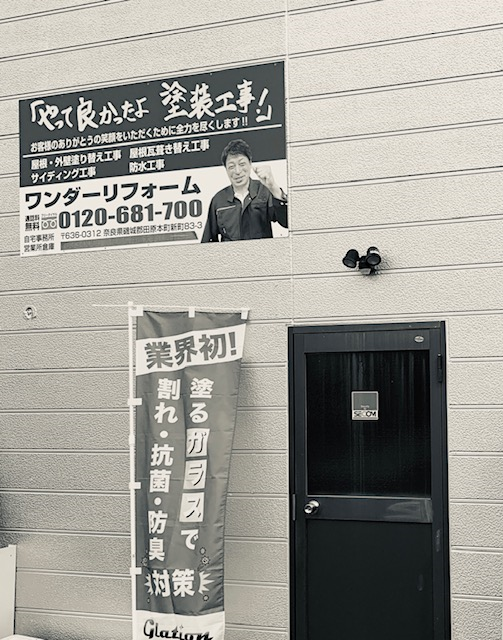 「やって良かったよ 塗装工事！」
お客様のありがとうの笑顔をいただくために全力を尽くします!!
屋根・外壁塗り替え工事 屋根瓦葺き替え工事
サイディング工事 防水工事
ワンダーリフォーム
通話料無料 0120-681-700
自宅事務所 〒636-0312 奈良県磯城郡田原本町新町83-3
営業所倉庫
業界初!
塗るガラスで
割れ・抗菌・防臭
対策
Glation
SECOM